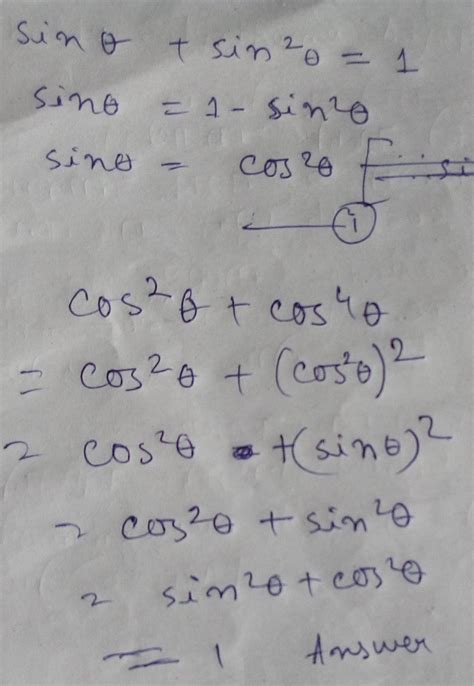 sin θ + sin²θ = 1
sinθ = 1 - sin²θ
sinθ = cos²θ
i
cos²θ + cos⁴θ
= cos²θ + (cos²θ)²
= cos²θ + (sinθ)²
= cos²θ + sin²θ
= sin²θ + cos²θ
= 1 Answer